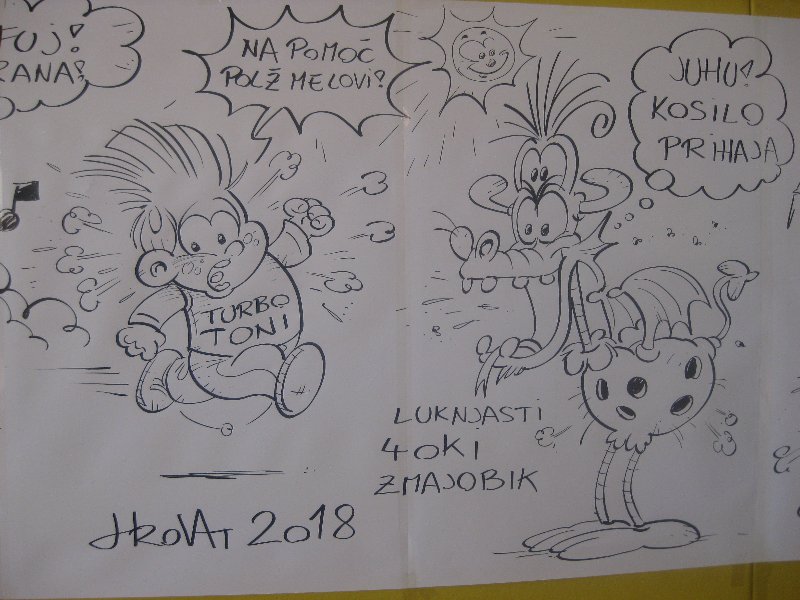 FUJ!
RANA!
NA POMOČ
POLŽMELOVI!
JUHU!
KOSILO
PRIHAJA
TURBO
TONI
LUKNJASTI
4OKI
ZMAJOBIK
2018